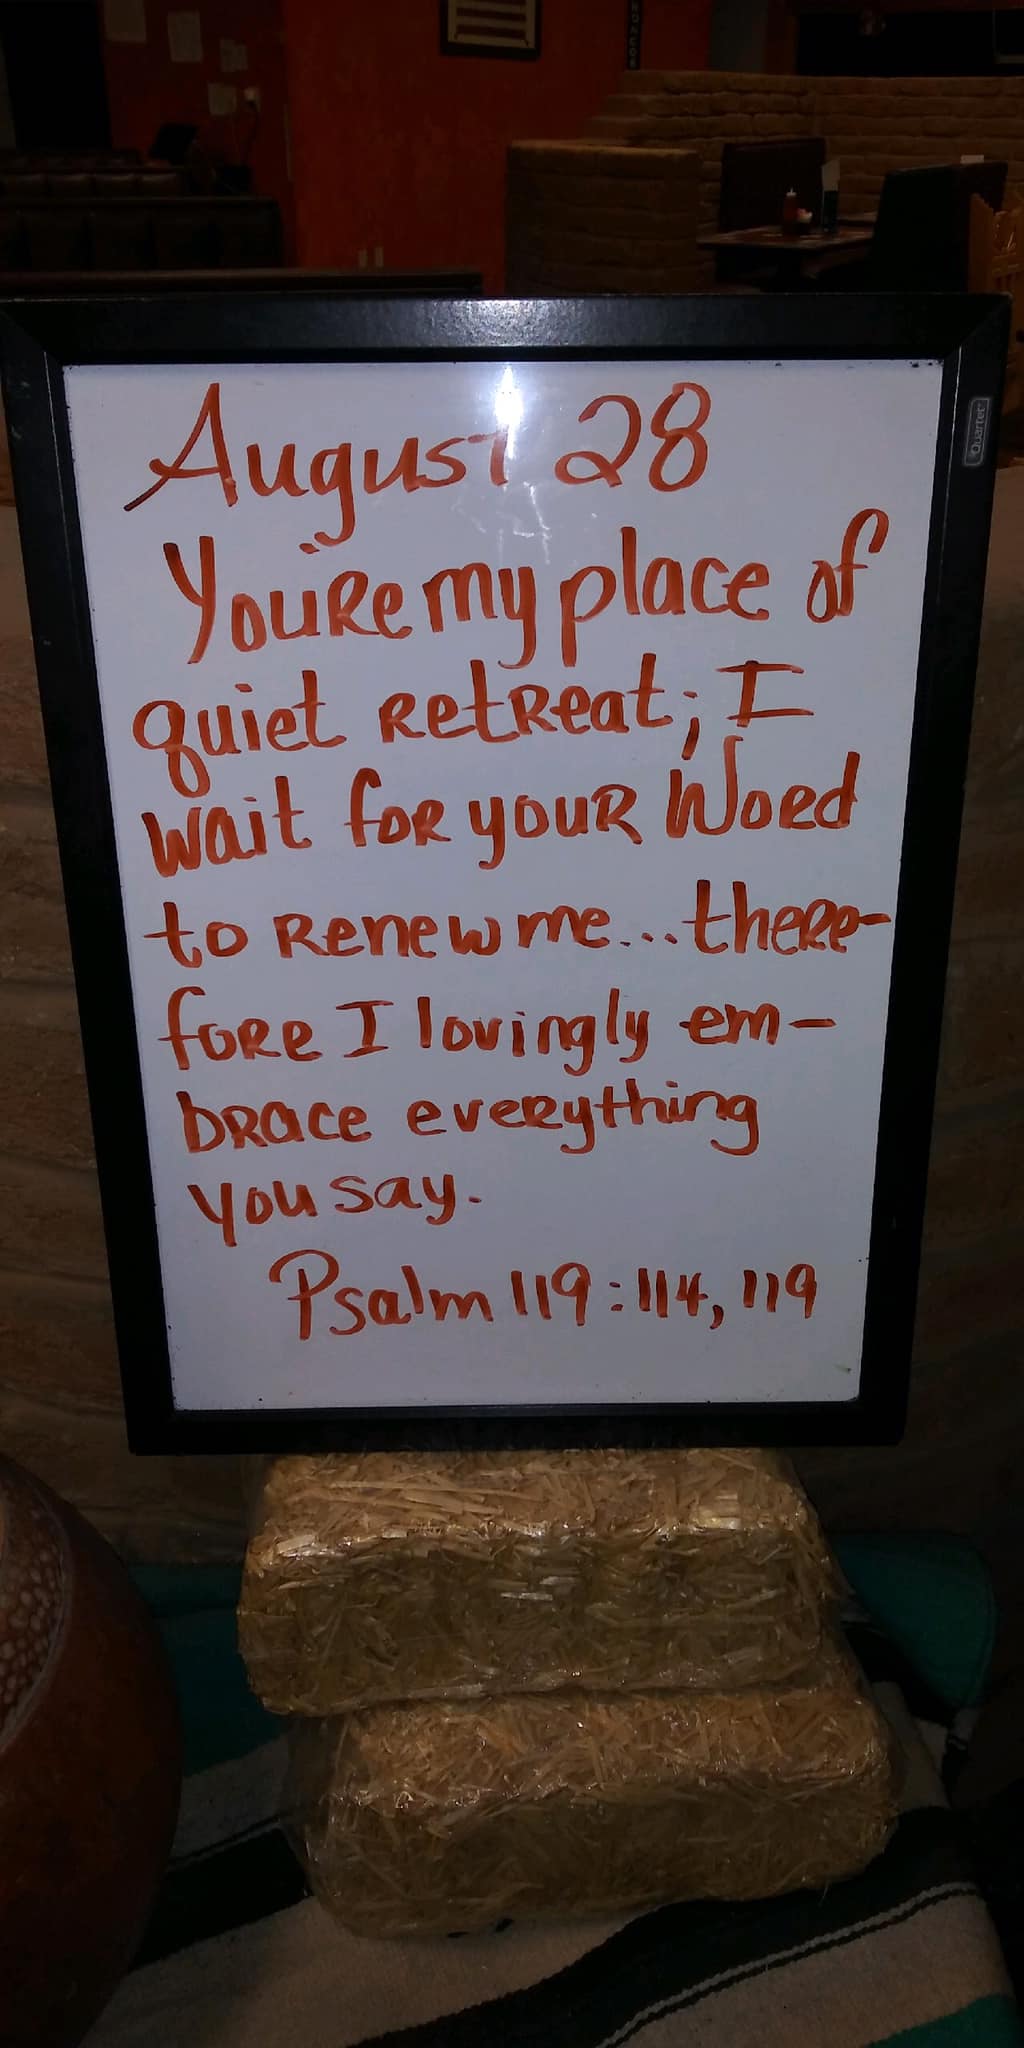 August 28
You're my place of
quiet retreat; I
wait for your Word
to renew me... there-
fore I lovingly em-
brace everything
you say.
Psalm 119:114, 119
Quartet